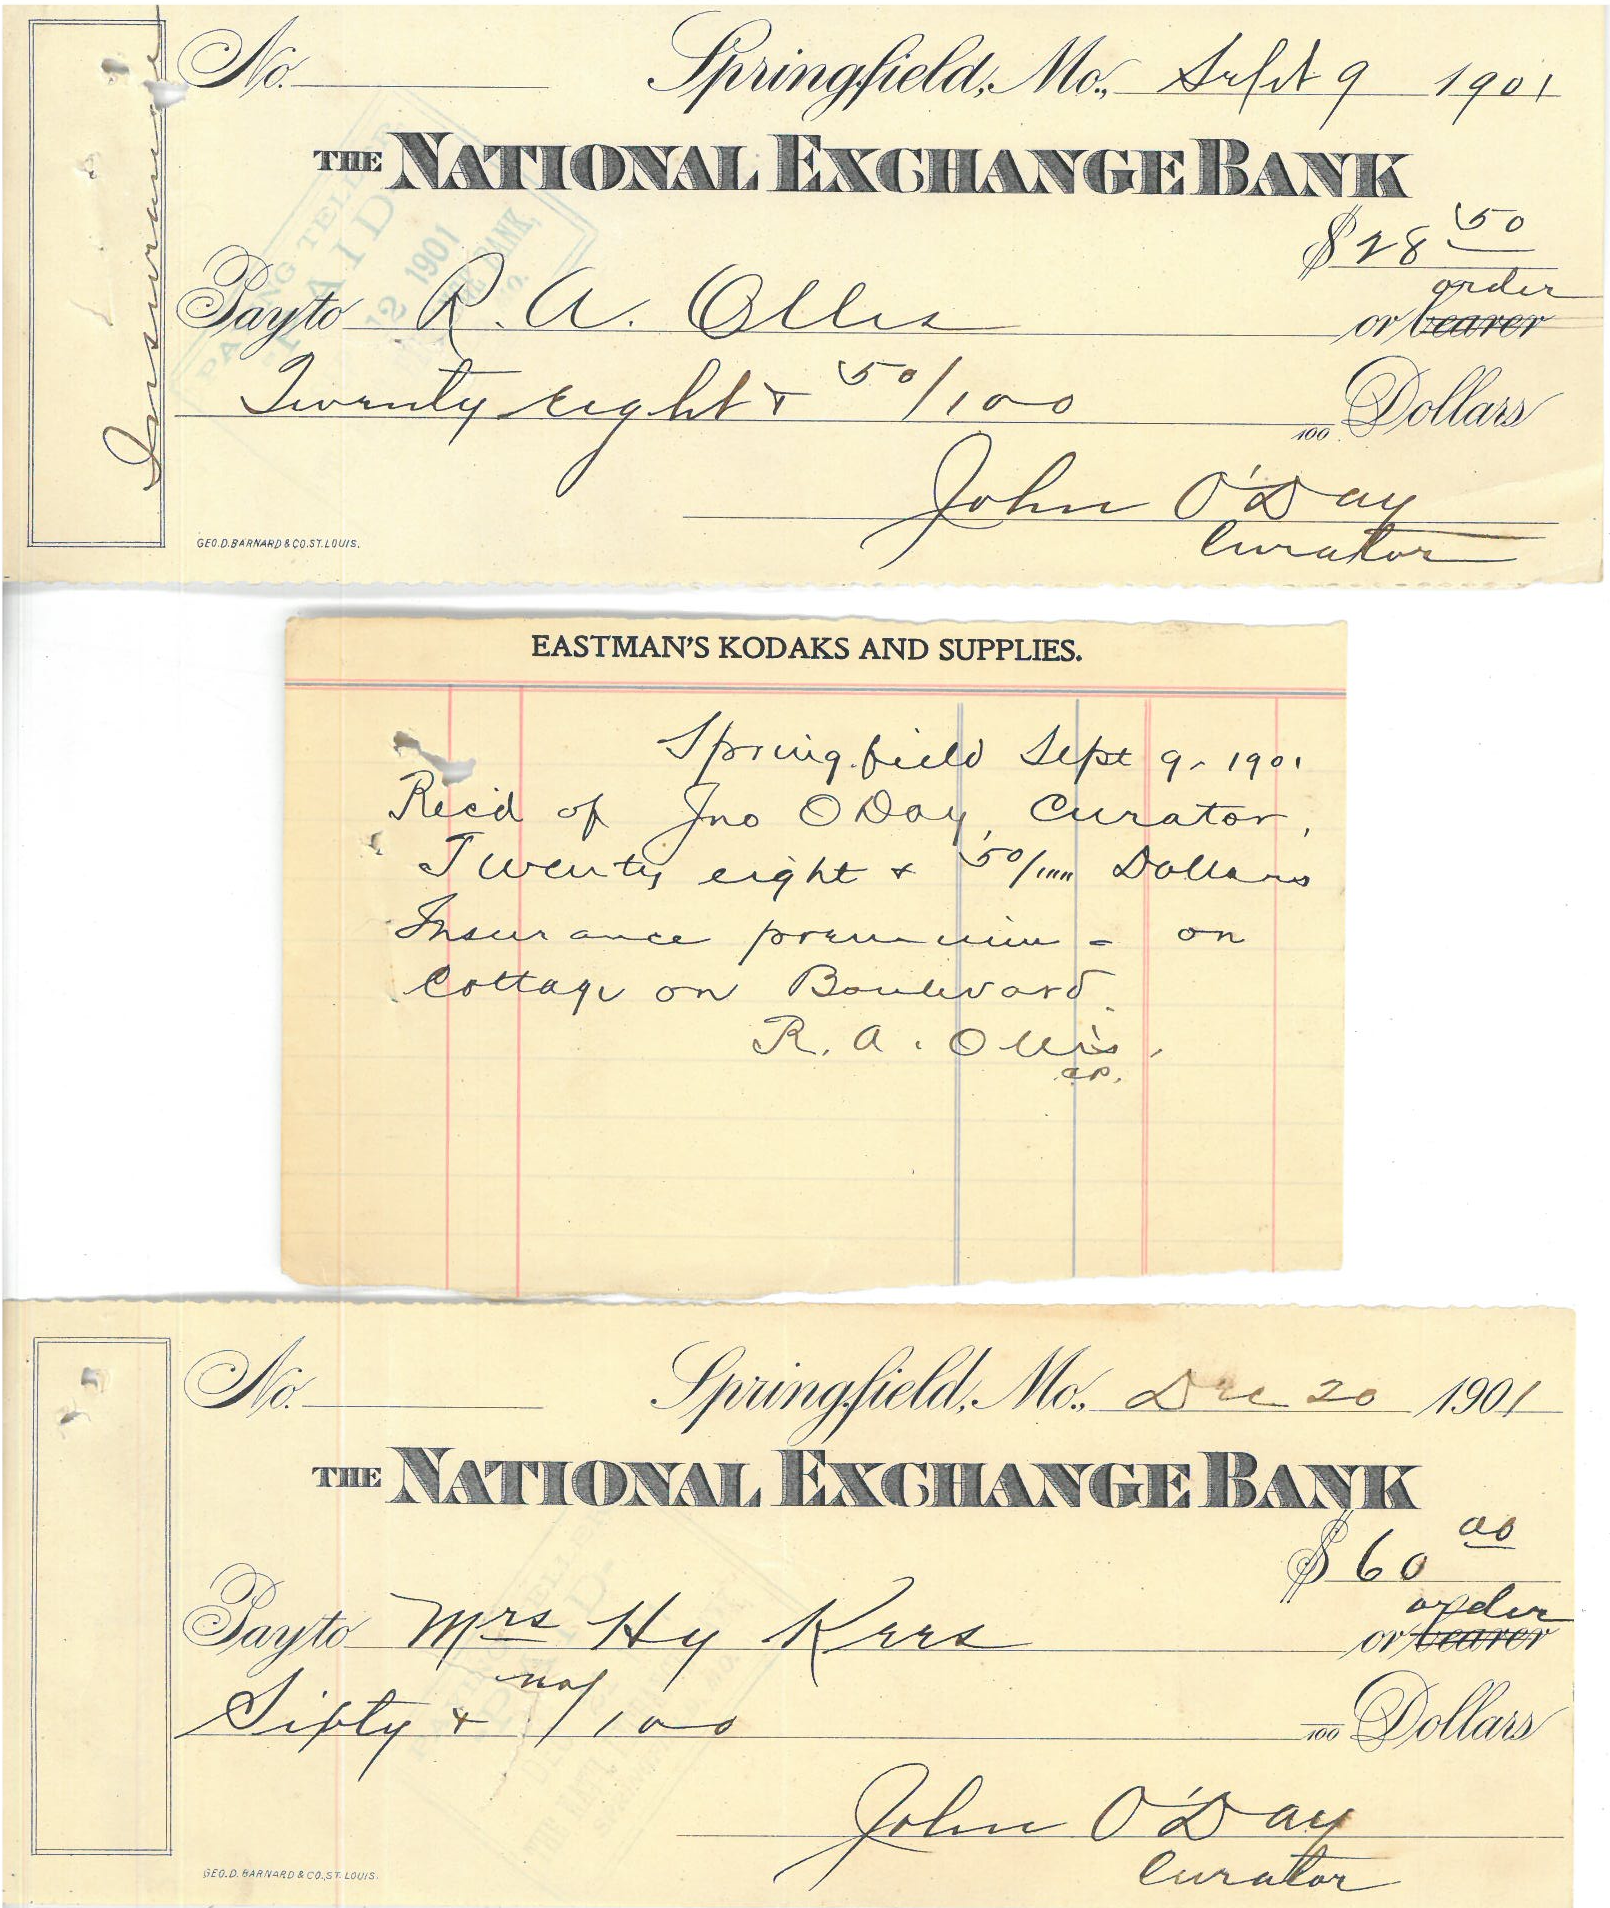 Insurance
No. Springfield, Mo., Sept 9 1901
THE NATIONAL EXCHANGE BANK
PAYING TELLER
PAID
12 1901
BANK,
$28 50
order
Pay to R. A. Ollis or bearer
Twenty eight & 50/100 100 Dollars
John O'Day
Curator
GEO.D.BARNARD & CO.ST.LOUIS.
EASTMAN'S KODAKS AND SUPPLIES.
Springfield Sept 9, 1901
Rec'd of Jno O Day, Curator,
Twenty eight & 50/100 Dollars
Insurance premium - on
Cottage on Boulevard.
R. A. Ollis.
No. Springfield, Mo., Dec 20 1901
THE NATIONAL EXCHANGE BANK
$60 00
order
Pay to Mrs Hy Krrs or bearer
Sixty & no/100 100 Dollars
John O'Day
Curator
GEO.D. BARNARD & CO., ST. LOUIS.